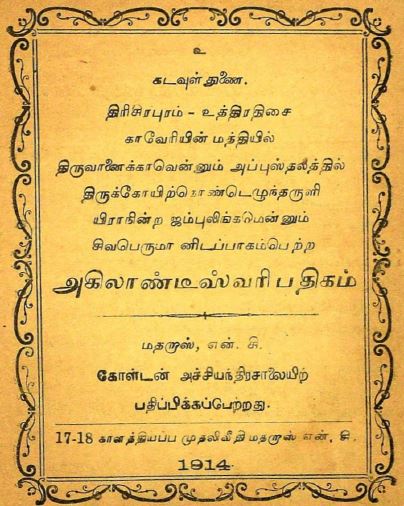 உ
கடவுள் துணை.
திரிசிரபுரம் - உத்திரதிசை
காவேரியின் மத்தியில்
திருவானைக்காவென்னும் அப்புஸ்தலத்தில்
திருக்கோயிற்கொண்டெழுந்தருளி
யிராநின்ற ஜம்புலிங்கமென்னும்
சிவபெருமா னிடப்பாகம்பெற்ற
அகிலாண்டீஸ்வரி பதிகம்
மதறாஸ், என். சி.
கோல்டன் அச்சியந்திரசாலையிற்
பதிப்பிக்கப்பெற்றது.
17-18 காளத்தியப்ப முதலிவீதி மதறாஸ் என். சி.
1914.